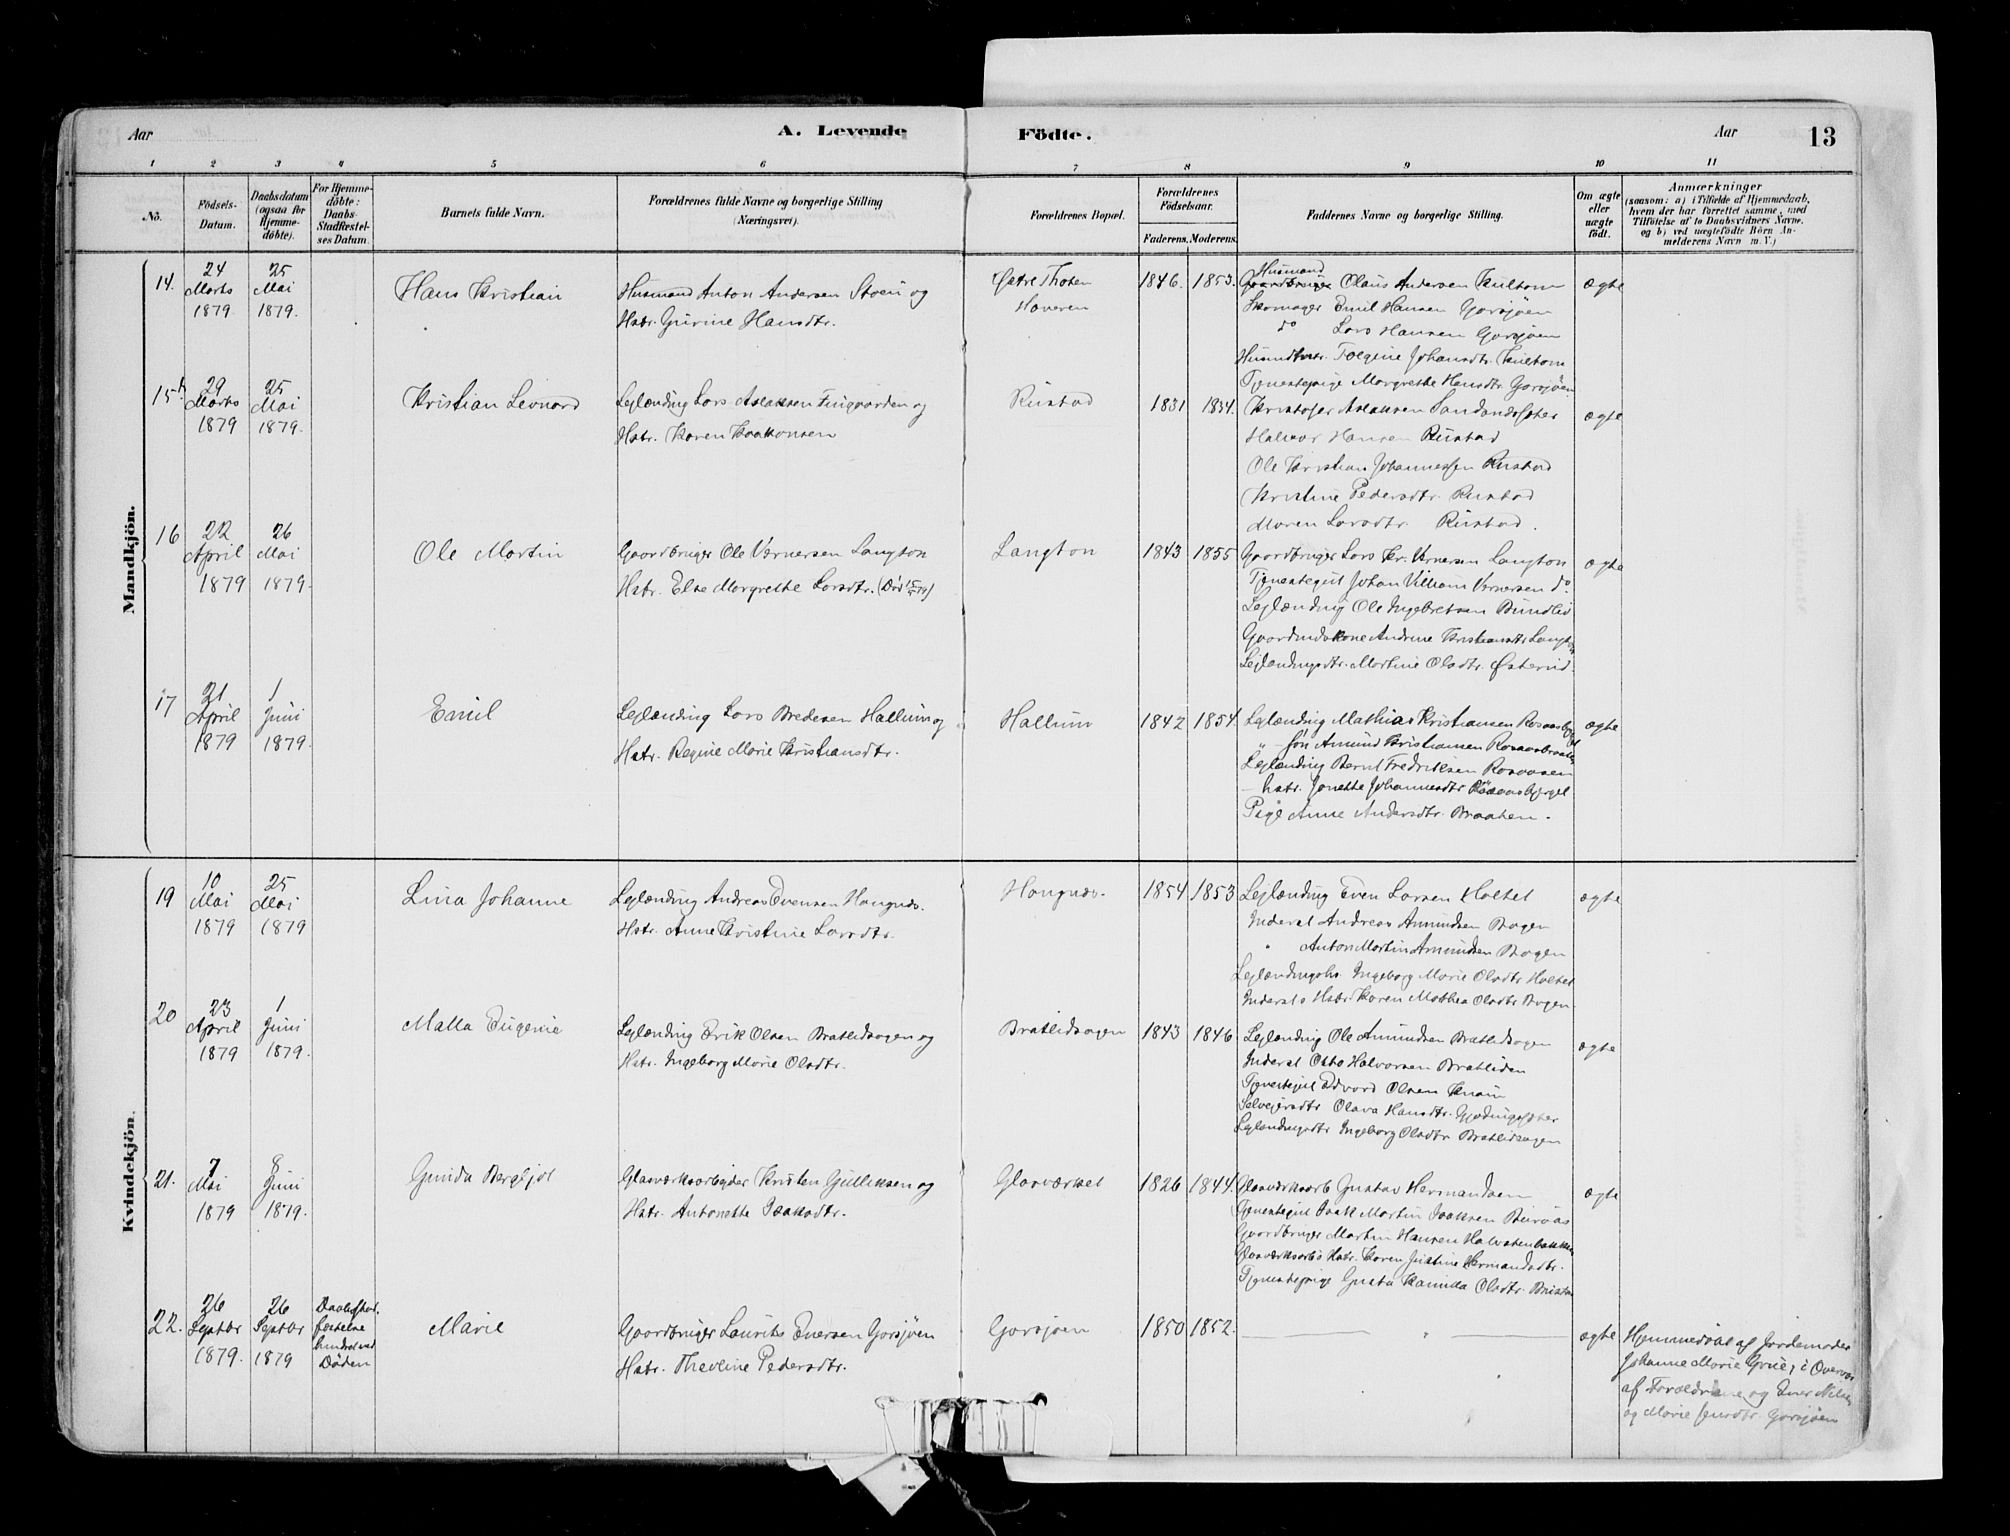 Aar
A. Levende
Födte.
Aar
13
1 2 3 4 5 6 7 8 9 10 11
No.
Födsels-Datum.
Daabsdatum (ogsaa for Hjemme-döbte).
For Hjemme-döbte: Daabs-Stadfæstel-ses Datum.
Barnets fulde Navn.
Forældrenes fulde Navne og borgerlige Stilling (Næringsvei).
Forældrenes Bopæl.
Forældrenes Födselsaar.
Faderens. Moderens.
Faddernes Navne og borgerlige Stilling.
Om ægte eller uægte födt.
Anmærkninger
(saasom: a) i Tilfælde af Hjemmedaab,
hvem der har forrettet samme, med
Tilföielse af to Daabsvidners Navne.
og b) ved uægtefödte Börn An-
melderens Navn m. V.)
Mandkjön.
14.
24 Marts 1879
25 Mai 1879.
Hans Kristian
Husmand Anton Andersen Stoen og
Hstr. Gurine Hansdtr.
Østre Thoten
Hoveren
1846. 1853.
Husmand
Gaardbruger Olaus Andersen Kultom
Skomager Emil Hansen Gorsjøen
do Lars Hansen Gorsjøen
Johansdtr. Kultom
Tjenestepige Margrethe Hansdtr. Gorsjøen
ægte
15
29 Marts 1879
25 Mai 1879.
Kristian Leonard
Lejlænding Lars Aslaksen og
Hstr. Karen Haakonsen
Rustad
1831 1834.
Kristofer Aslaksen
Halvor Hansen Rustad
Ole Kristian Johannessen Rustad
Kristine Pedersdtr. Rustad
Maren Larsdtr. Rustad.
ægte
16
22 April 1879
26 Mai 1879.
Ole Martin
Gaardbruger Ole Vernersen Langton
Hstr. Else Margrethe Larsdtr.
Langton
1843 1855
Gaardbruger Lars Kr. Vernersen Langton
Tjenestegut Johan Vilhelm Vernersen do.
Lejlænding Ole Ingebretsen Bundlid
Andrine Kristiansdtr Langton
Lejlændingsdtr. Martine Olsdtr. Østerud.
ægte
17
21 April 1879
1 Juni 1879.
Emil
Lejlænding Lars Bredesen Hallum og
Hstr. Regine Marie Kristiansdtr.
Hallum
1842 1854.
Lejlænding Mathias Kristiansen
" søn Amund Kristiansen
Lejlænding Bernt Fredriksen Rosaasen
— hstr. Jonette Johannesdtr
Pige Anne Andersdtr. Braaten.
ægte
Kvindekjön.
19
10 Mai 1879
25 Mai 1879
Lina Johanne
Lejlænding Andreas Evensen Hongnæs.
Hstr. Anne Kristine Larsdtr.
Hongnæs.
1854 1853
Lejlænding Even Larsen Holtet
Inderst Andreas Amundsen Bagen
" Anton Martin Amundsen Bagen
Ingeborg Marie Olsdtr Holtet
Inderst's Hstr. Karen Mathea Olsdtr Bagen
ægte
20
23 April 1879
1 Juni 1879.
Malla Eugenie
Lejlænding Erik Olsen Bratlidsagen og
Hstr. Ingeborg Marie Olsdtr.
Bratlidsagen
1843 1846.
Lejlænding Ole Amundsen Bratlidsagen
Inderst Otto Halvorsen Bratliden
Tjenestegut Edvard Olsen
Selveiersdtr Olava Hansdtr.
Lejlændingsdtr Ingeborg Olsdtr Bratlidsagen
ægte
21.
7 Mai 1879
8 Juni 1879.
Gunda Bergljot
Glasværksarbejder Kristen Gulliksen og
Hstr. Antonette Isaksdtr.
Glasværket
1826 1844.
Glasværksarb Gustav Hermandsen
Tjenestegut Isak Martin Isaksen
Gaardbruger Martin Hansen
Glasværksarb's Hstr. Karen Justine Hermandsdtr.
Tjenestepige Gusta Kamilla Olsdtr.
ægte
22.
26 Septbr 1879.
26 Septbr 1879
hindret ved
Døden
Marie
Gaardbruger Laurits Enersen Gorsjøen
Hstr. Theoline Pedersdtr.
Gorsjøen
1850 1852.
ægte
Hjemmedøbt af Jordemoder
Johanne Marie Grue, i Overvær
af Forældrene og Ener Nilsen
og Marie Jensdtr. Gorsjøen